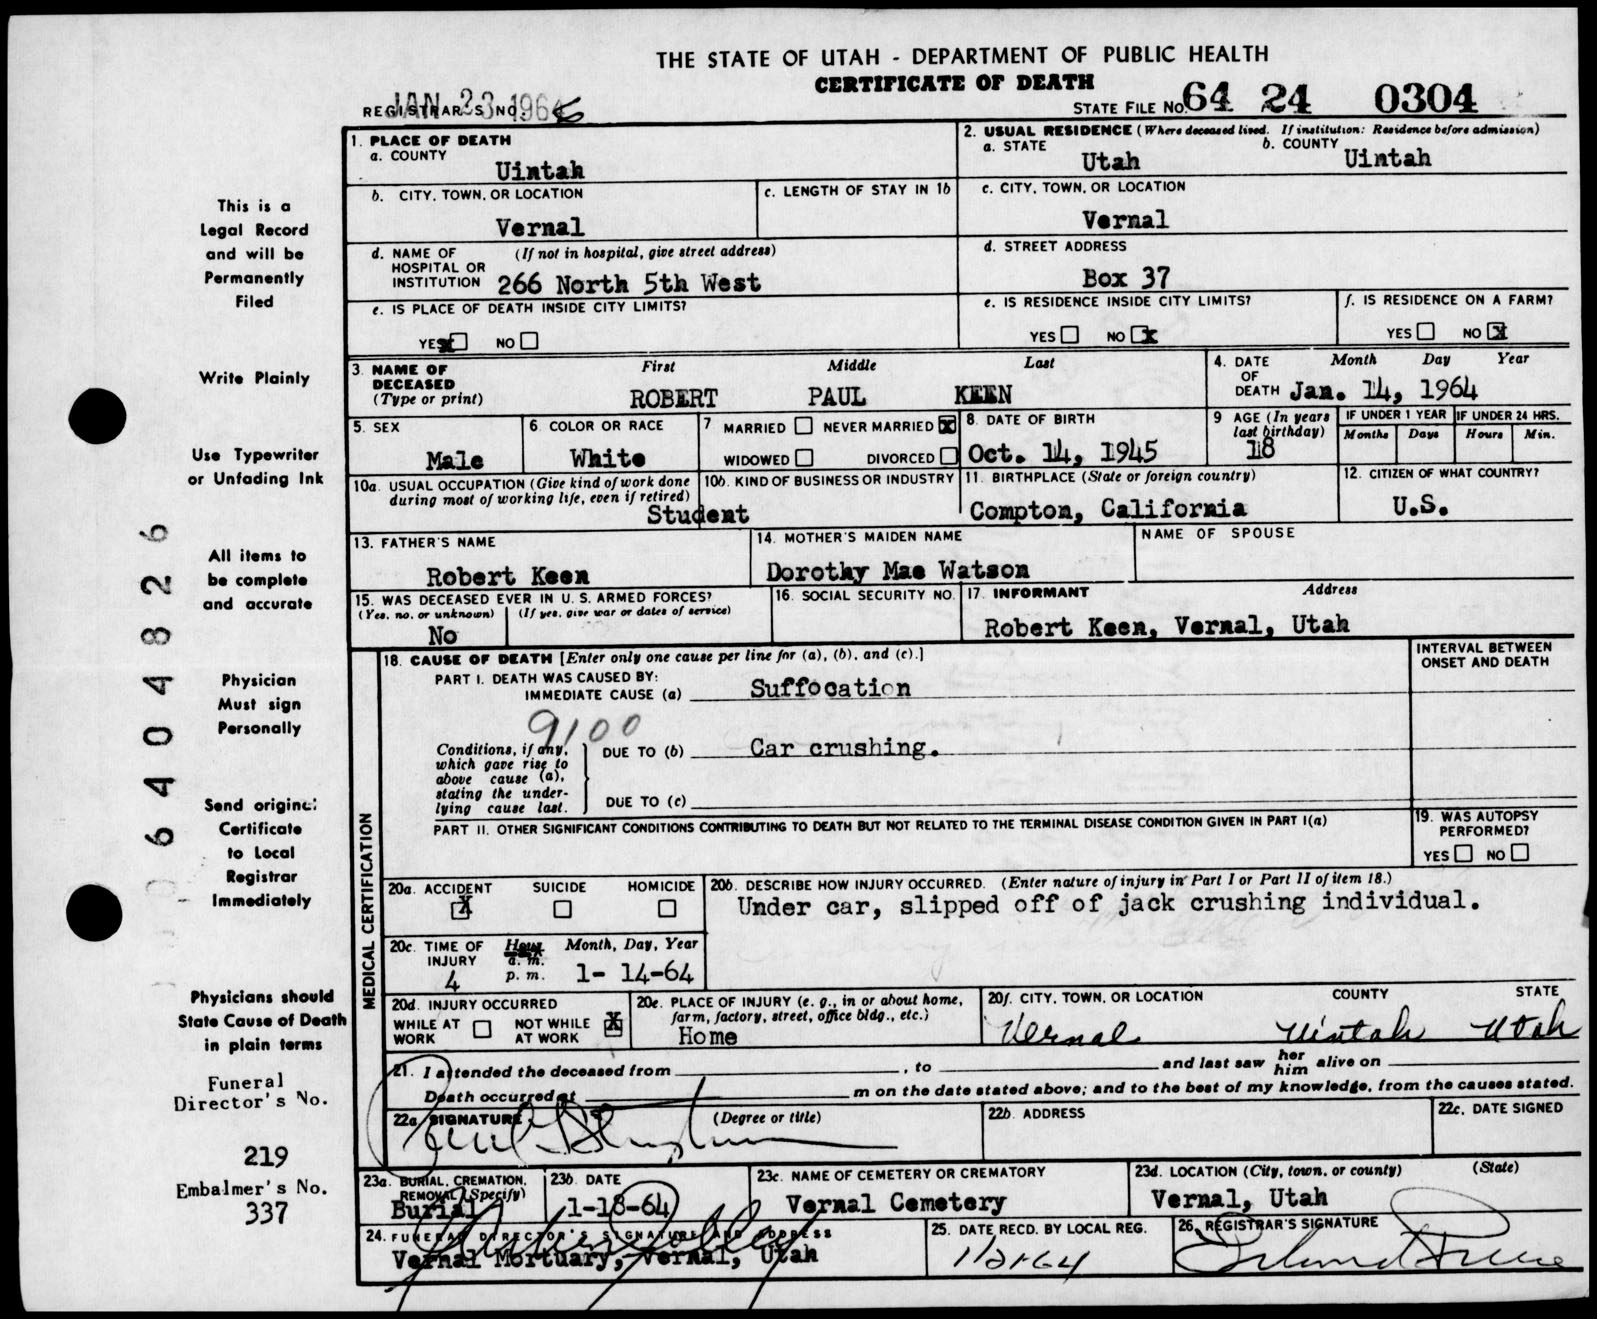 THE STATE OF UTAH - DEPARTMENT OF PUBLIC HEALTH
CERTIFICATE OF DEATH
REGISTRAR'S NO. JAN 23 1964
STATE FILE NO. 64 24 0304
1. PLACE OF DEATH
a. COUNTY
Uintah
2. USUAL RESIDENCE (Where deceased lived. If institution: Residence before admission)
a. STATE
Utah
b. COUNTY
Uintah
b. CITY, TOWN, OR LOCATION
Vernal
c. LENGTH OF STAY IN 1b
c. CITY, TOWN, OR LOCATION
Vernal
d. NAME OF HOSPITAL OR INSTITUTION (If not in hospital, give street address)
266 North 5th West
d. STREET ADDRESS
Box 37
e. IS PLACE OF DEATH INSIDE CITY LIMITS?
YES X NO
e. IS RESIDENCE INSIDE CITY LIMITS?
YES NO X
f. IS RESIDENCE ON A FARM?
YES NO X
3. NAME OF DECEASED (Type or print)
First Middle Last
ROBERT PAUL KEEN
4. DATE OF DEATH Month Day Year
Jan. 14, 1964
5. SEX
Male
6. COLOR OR RACE
White
7 MARRIED NEVER MARRIED X
WIDOWED DIVORCED
8. DATE OF BIRTH
Oct. 14, 1945
9 AGE (In years last birthday)
18
IF UNDER 1 YEAR
Months Days
IF UNDER 24 HRS.
Hours Min.
10a. USUAL OCCUPATION (Give kind of work done during most of working life, even if retired)
Student
10b. KIND OF BUSINESS OR INDUSTRY
11. BIRTHPLACE (State or foreign country)
Compton, California
12. CITIZEN OF WHAT COUNTRY?
U.S.
13. FATHER'S NAME
Robert Keen
14. MOTHER'S MAIDEN NAME
Dorothy Mae Watson
NAME OF SPOUSE
15. WAS DECEASED EVER IN U. S. ARMED FORCES?
(Yes, no, or unknown) (If yes, give war or dates of service)
No
16. SOCIAL SECURITY NO.
17. INFORMANT Address
Robert Keen, Vernal, Utah
MEDICAL CERTIFICATION
18. CAUSE OF DEATH [Enter only one cause per line for (a), (b), and (c).]
INTERVAL BETWEEN ONSET AND DEATH
PART I. DEATH WAS CAUSED BY:
IMMEDIATE CAUSE (a) Suffocation
9100
Conditions, if any, which gave rise to above cause (a), stating the underlying cause last.
DUE TO (b) Car crushing.
DUE TO (c)
PART II. OTHER SIGNIFICANT CONDITIONS CONTRIBUTING TO DEATH BUT NOT RELATED TO THE TERMINAL DISEASE CONDITION GIVEN IN PART I(a)
19. WAS AUTOPSY PERFORMED?
YES NO
20a. ACCIDENT SUICIDE HOMICIDE
X
20b. DESCRIBE HOW INJURY OCCURRED. (Enter nature of injury in Part I or Part II of item 18.)
Under car, slipped off of jack crushing individual.
20c. TIME OF INJURY Hour Month, Day, Year
a. m.
p. m.
4 1- 14-64
20d. INJURY OCCURRED
WHILE AT WORK NOT WHILE AT WORK X
20e. PLACE OF INJURY (e. g., in or about home, farm, factory, street, office bldg., etc.)
Home
20f. CITY, TOWN, OR LOCATION COUNTY STATE
Vernal Uintah Utah
21. I attended the deceased from , to and last saw her him alive on
Death occurred at m on the date stated above; and to the best of my knowledge, from the causes stated.
22a. SIGNATURE (Degree or title)
22b. ADDRESS
22c. DATE SIGNED
23a. BURIAL, CREMATION, REMOVAL (Specify)
Burial
23b. DATE
1-18-64
23c. NAME OF CEMETERY OR CREMATORY
Vernal Cemetery
23d. LOCATION (City, town, or county) (State)
Vernal, Utah
24. FUNERAL DIRECTOR'S SIGNATURE AND ADDRESS
Vernal Mortuary, Vernal, Utah
25. DATE RECD. BY LOCAL REG.
1/21-64
26. REGISTRAR'S SIGNATURE
This is a
Legal Record
and will be
Permanently
Filed
Write Plainly
Use Typewriter
or Unfading Ink
All items to
be complete
and accurate
Physician
Must sign
Personally
Send original
Certificate
to Local
Registrar
Immediately
Physicians should
State Cause of Death
in plain terms
Funeral
Director's No.
219
Embalmer's No.
337
6404826